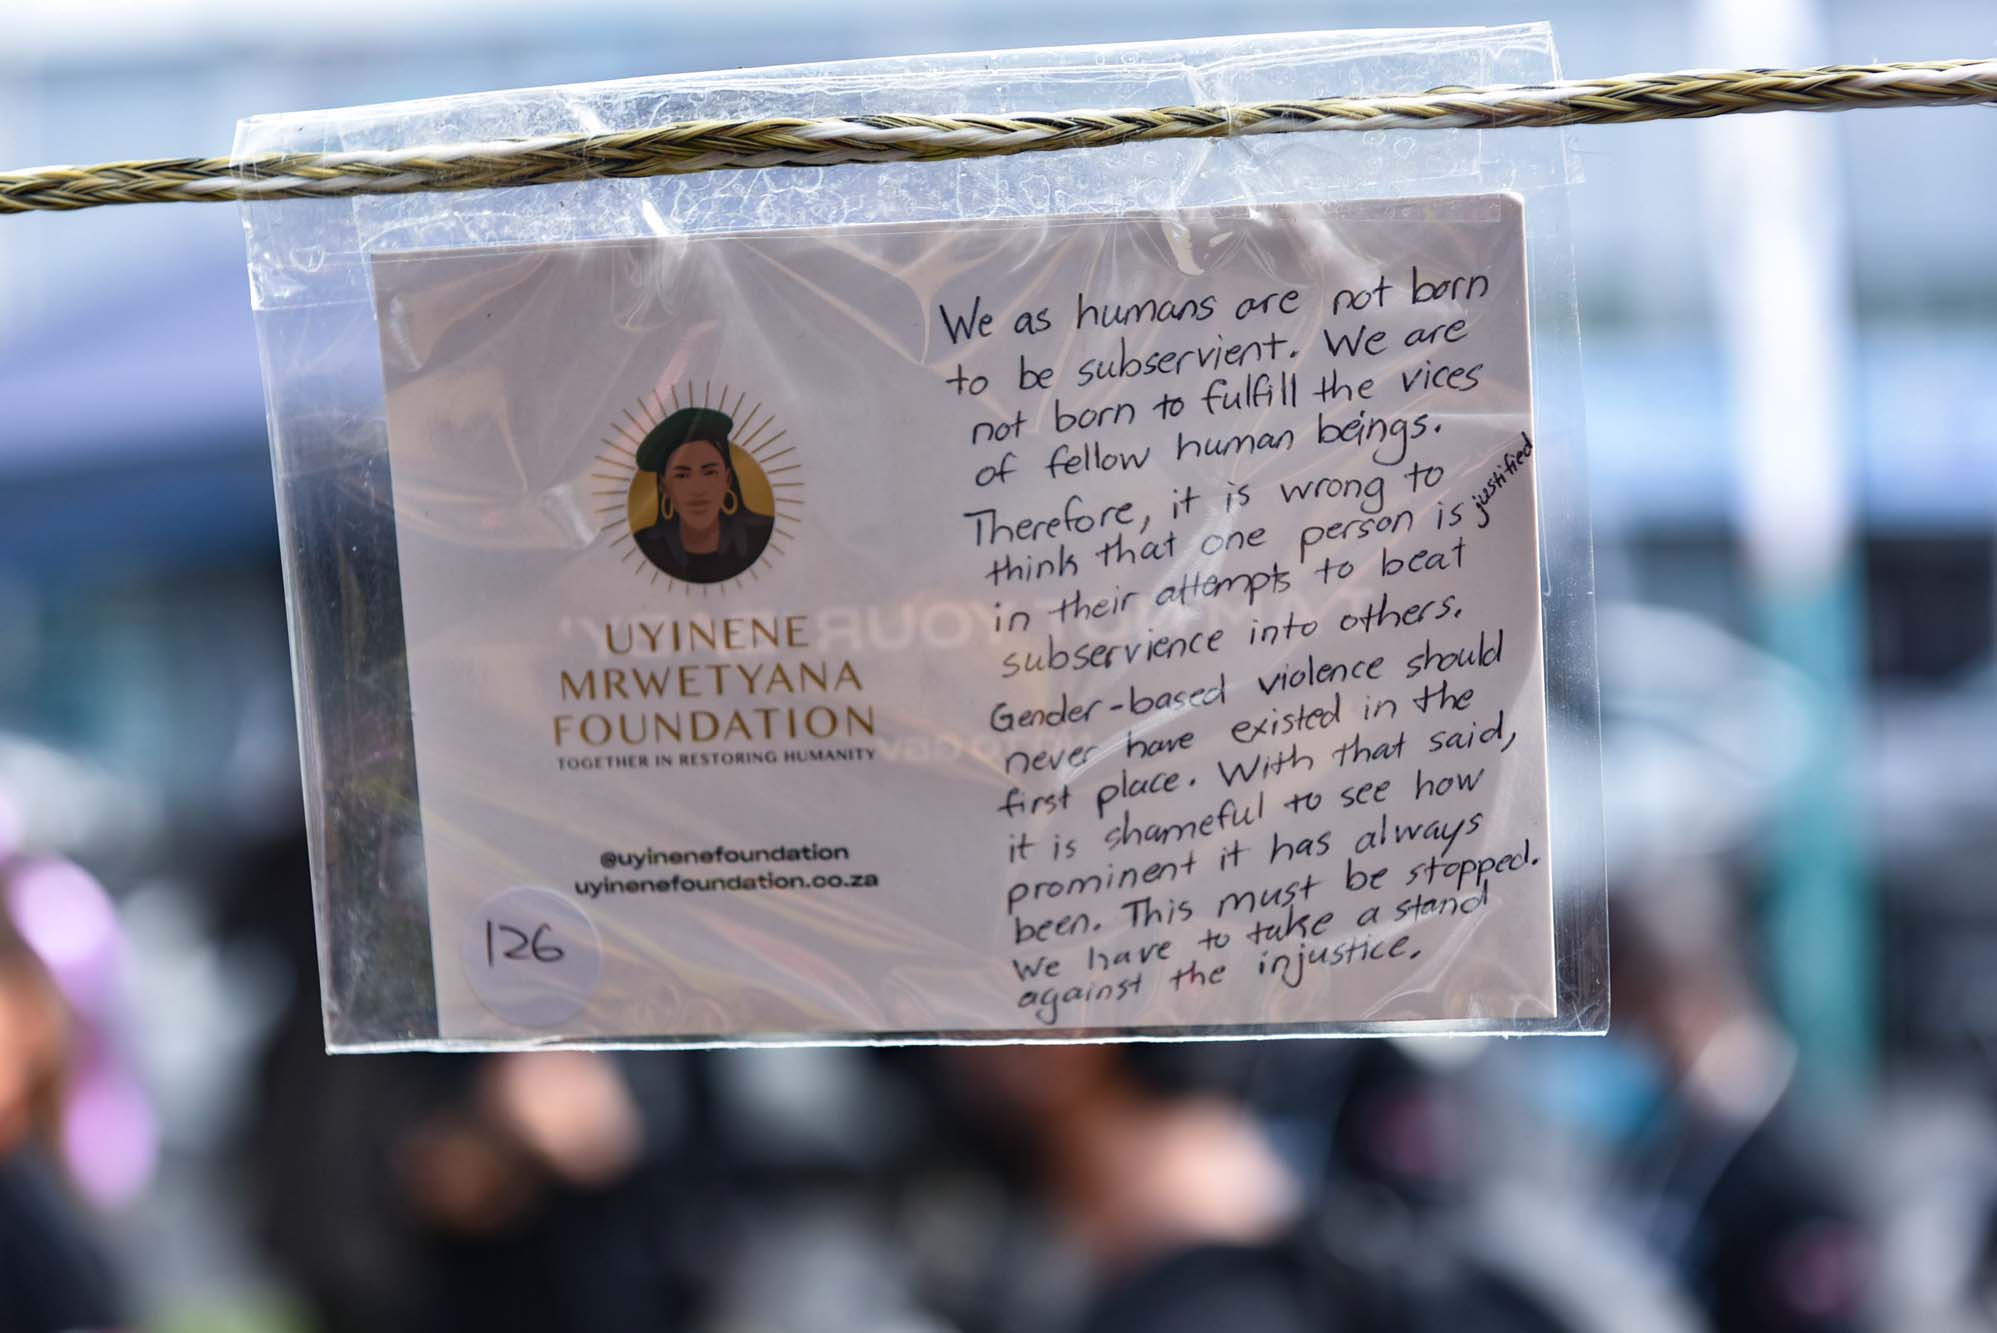 UYINENE
MRWETYANA
FOUNDATION
TOGETHER IN RESTORING HUMANITY
@uyinenefoundation
uyinenefoundation.co.za
126
We as humans are not born
to be subservient. We are
not born to fulfill the vices
of fellow human beings.
Therefore, it is wrong to
think that one person is justified
in their attempts to beat
subservience into others.
Gender-based violence should
never have existed in the
first place. With that said,
it is shameful to see how
prominent it has always
been. This must be stopped.
We have to take a stand
against the injustice.